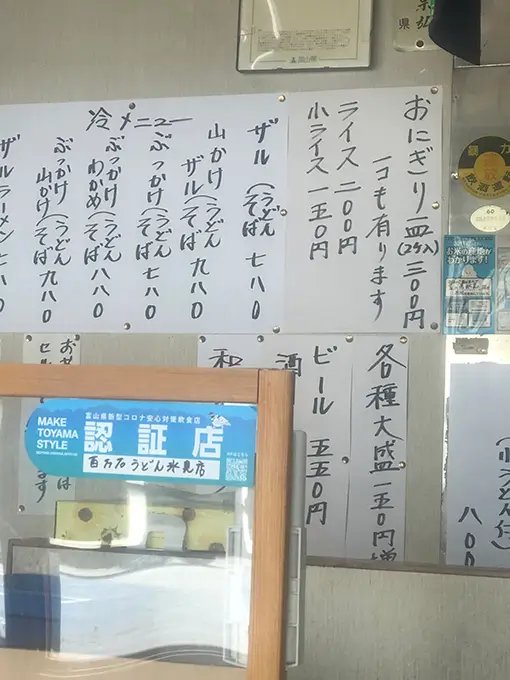 おにぎり一皿(2ケ入)三〇〇円
一コも有ります
ライス 二〇〇円
小ライス 一五〇円
冷メニュー
ザル(うどん そば 七八〇
山かけザル(うどん そば 九八〇
ぶっかけ(うどん そば 七八〇
ぶっかけわかめ(うどん そば 八八〇
ぶっかけ山かけ(うどん そば 九八〇
ザルラーメン 七八〇
各種大盛一五〇円増
ビール 五五〇円
酒
和
八〇〇
お米の産地がわかります!
60
MAKE TOYAMA STYLE
富山県新型コロナ安心対策飲食店
認証店
百万石うどん氷見店